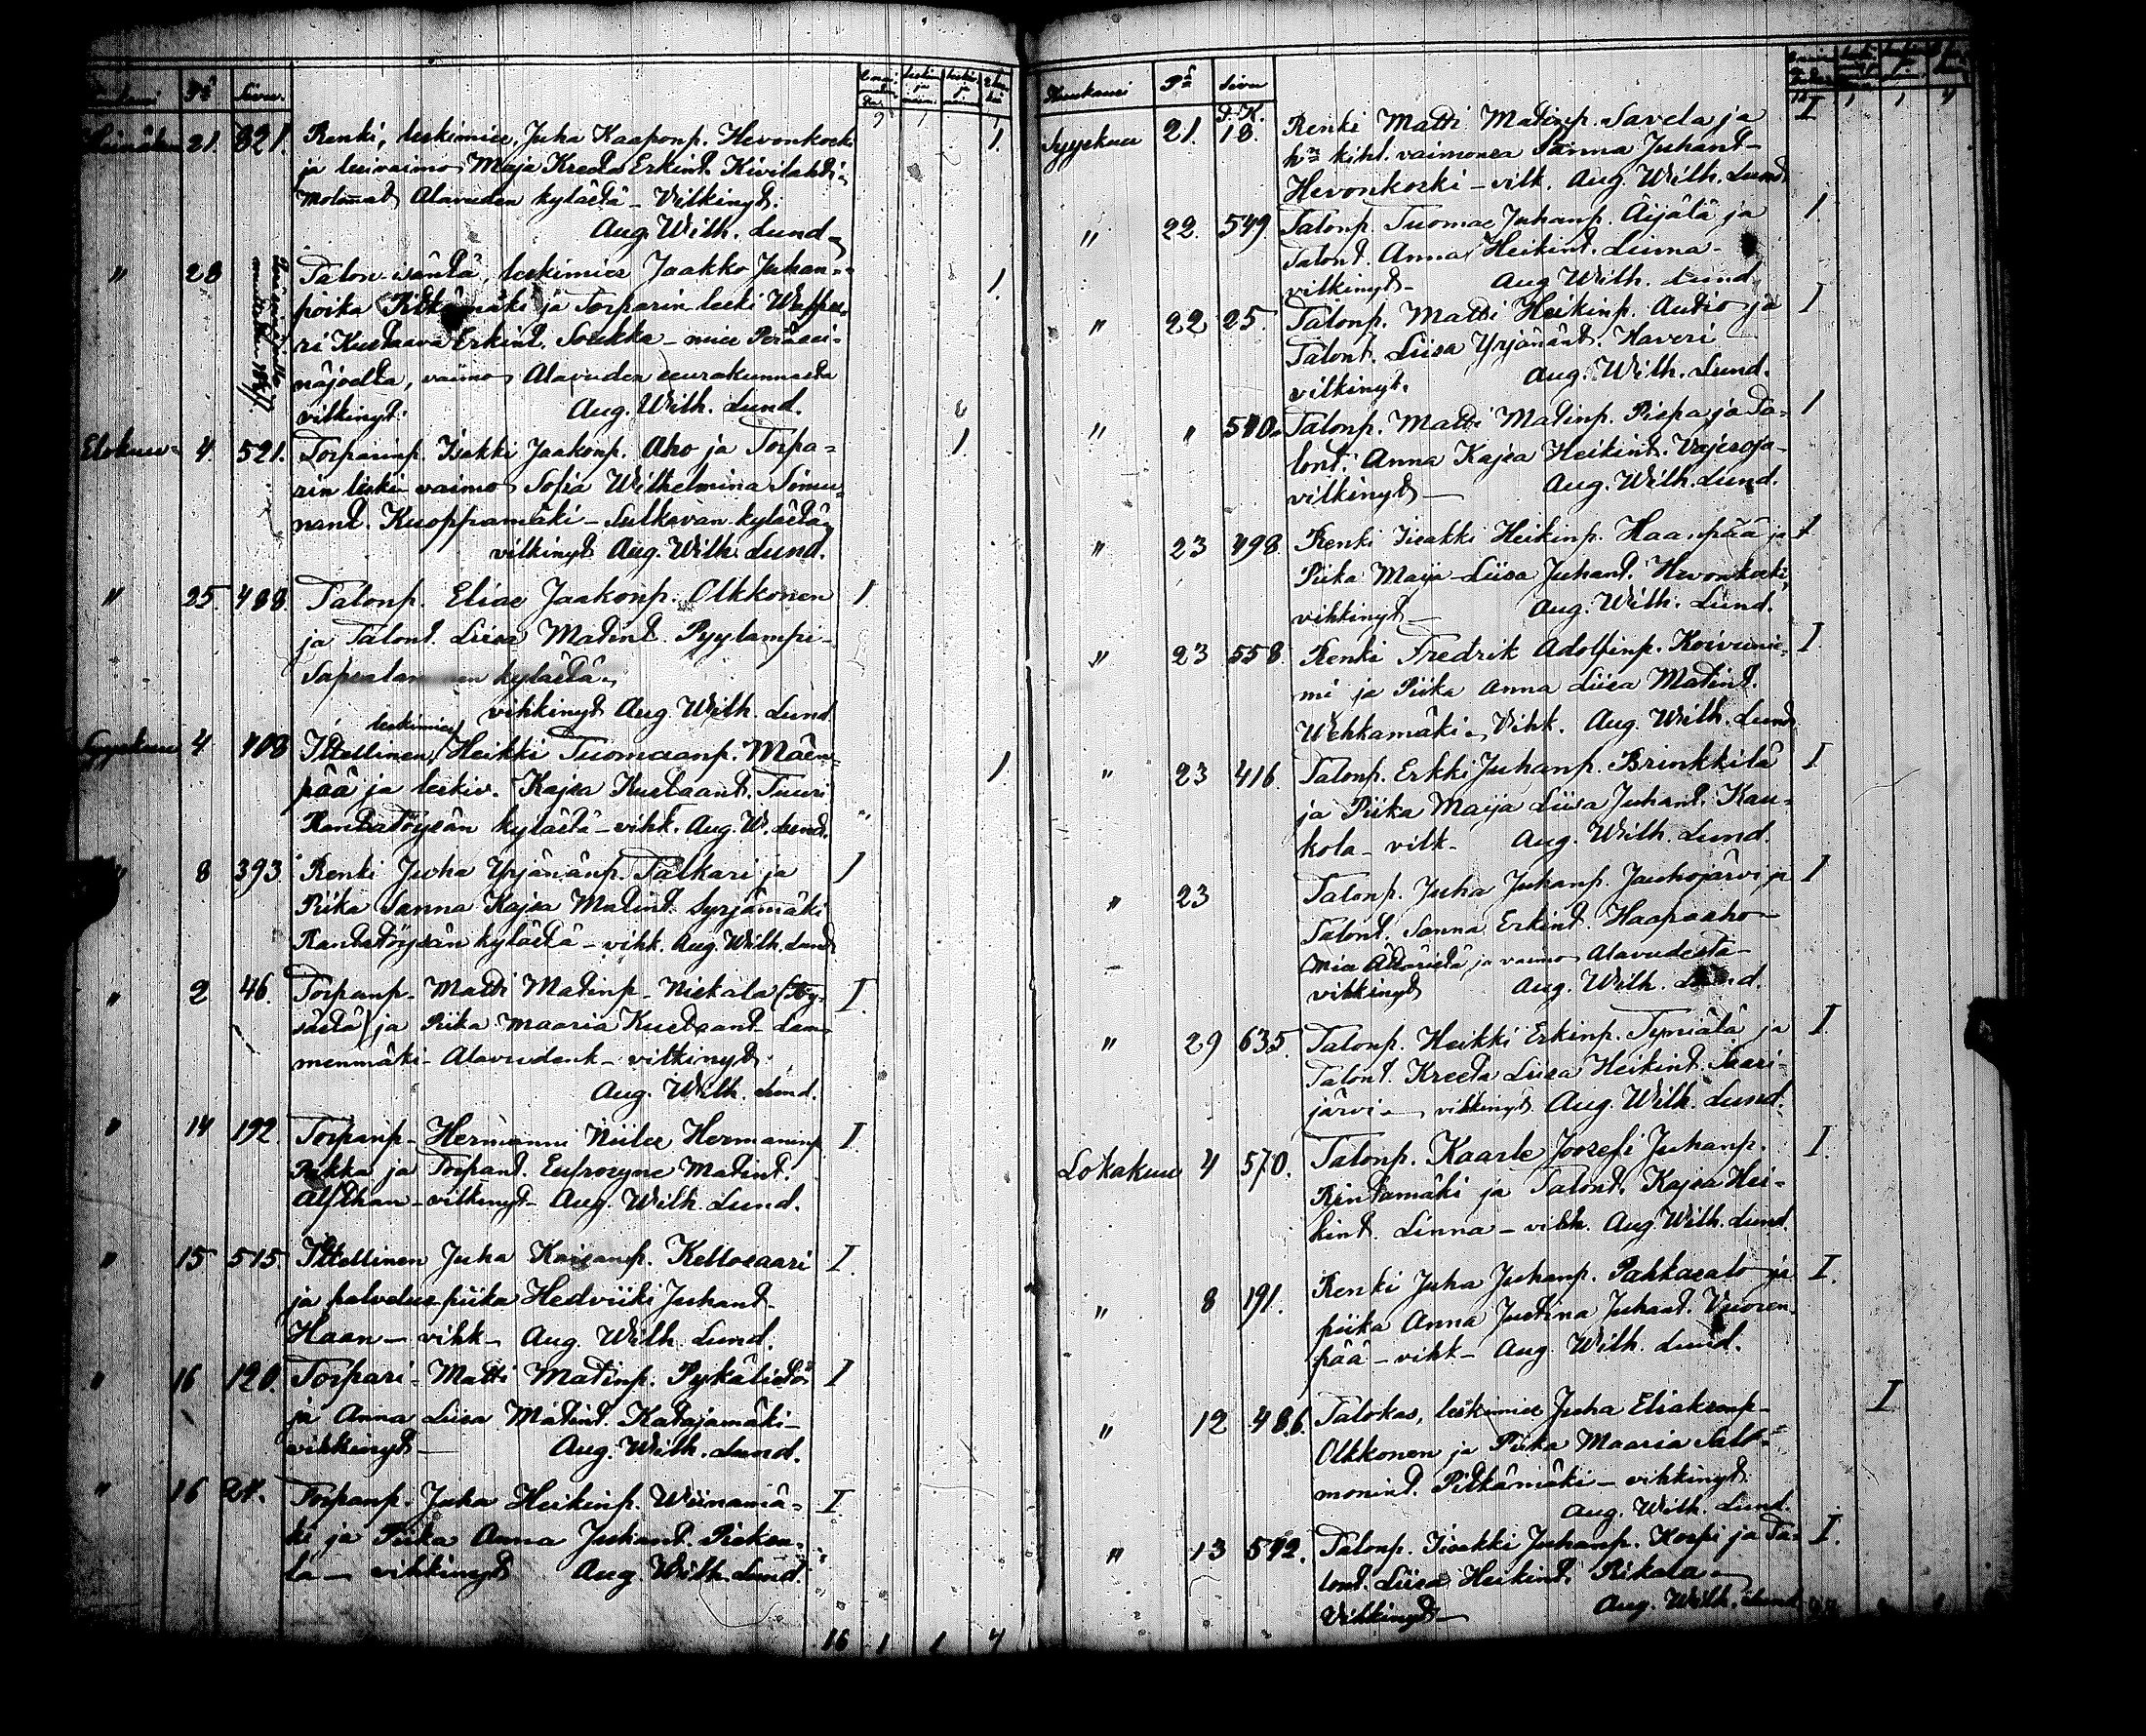 Pä Sivu
Heinäkuu 21 321. Renki, leskimies, Juha Kaaponp. Hevonkoski 1.
ja leskivaimo Maja Kreeta Erkint. Kivilahti
molemat Alavuden kylästä – Vihkinyt.
Aug. Wilh. Lund
" 28 Talon isäntä, leskimies Jaakko Juhan- 1.
poika Pitkämäki ja Torparin leski Walpu-
ri Kustaava Erkint. Soukka – mies Peräsei-
näjoelta, vaimo Alavuden seurakunnasta
vihkinyt. Aug. Wilh. Lund.
Elokuu 4. 521. Torparinp. Isakki Jaakonp. Aho ja Torpa- 1
rin leski vaimo Sofia Wilhelmina Simu-
nant. Kuoppamäki – Sulkavan kylästä
vihkinyt Aug. Wilh. Lund.
" 25. 488. Talonp. Elias Jaakonp. Olkkonen 1.
ja Talont. Liisa Matint. Pyylampi-
kylästä
vihkinyt Aug. Wilh. Lund
leskimies
Syyskuu 4 408 Itsellinen, Heikki Tuomaanp. Mäen- 1
pää ja leskiv. Kajsa Kustaant. Tuuri
Rantatöysän kylästä – vihk. Aug. W. Lund.
" 8 393 Renki Juha Yrjänänp. Talkari ja 1
Piika Sanna Kajsa Matint. Syrjämäki
Rantatöysän kylästä – vihk. Aug. Wilh. Lund
" 2 46. Torpanp. Matti Matinp. Niskala (Töy- I.
sästä) ja Piika Maaria Kustaant. Lam-
menmäki – Alavudenk – vihkinyt
Aug. Wilh. Lund.
" 14 192. Torpanp. Hermanni Niilee Hermaninp I.
Pukka ja Torpant. Eufrosyne Matint.
Alfthan – vihkinyt – Aug. Wilh. Lund.
" 15 515. Itsellinen Juha Kaisanp. Kellosaari I.
ja palvelus piika Hedviiki Juhant.
Haan – vihk – Aug. Wilh. Lund.
" 16 120. Torpari – Matti Matinp. Pykälistö I
ja Anna Liisa Matint. Katajamäki –
vihkinyt – Aug. Wilh. Lund.
" 16 24. Torpanp. Juha Heikinp. Wiinamä- I
ki ja Piika Anna Juhant. Pisken-
lä – vihkinyt Aug. Wilh. Lund.
16 1 1 4
Kuukausi Pä Sivu
P.K.
Syyskuu 21. 18. Renki Matti Matinp. Savela ja I
hn kihl. vaimonsa Sanna Juhant –
Hevonkoski – vihk. Aug. Wilh. Lund
" 22. 549. Talonp. Tuomas Juhanp. Äijälä ja 1
Talont. Anna Heikint. Linna –
vihkinyt – Aug. Wilh. Lund
" 22 25. Talonp. Matti Heikinp. Autio ja I
Talont. Liisa Yrjänänt. Kaveri
vihkinyt. Aug. Wilh. Lund.
" " 540. Talonp. Matti Matinp. Pispa ja Ta- 1
lont. Anna Kajsa Heikint. Vajesoja –
vihkinyt – Aug. Wilh. Lund.
" 23 498 Renki Iisakki Heikinp. Haanpää ja 1
Piika Maija-Liisa Juhant. Hevonkoski
vihkinyt – Aug. Wilh. Lund.
" 23 558. Renki Fredrik Adolfinp. Koivunie- I
mi ja Piika Anna Liisa Matint.
Wehkamäki – Vihk. Aug. Wilh. Lund
" 23 416 Talonp. Erkki Juhanp. Brinkkilä I
ja Piika Maija Liisa Juhant. Kau-
kola – vihk – Aug. Wilh. Lund.
" 23 Talonp. Juha Juhanp. Jauhojärvi ja I
Talont. Sanna Erkint. Haapaaho –
Mies Ätsäristä ja vaimo Alavudesta –
vihkinyt Aug. Wilh. Lund.
" 29 635. Talonp. Heikki Erkinp. Tyniälä ja I
Talont. Kreeta Liisa Heikint. Saari-
järvi – vihkinyt Aug. Wilh. Lund.
Lokakuu 4 570. Talonp. Kaarle Joosefi Juhanp. I.
Rintamäki ja Talont. Kajsa Hei-
kint. Linna – vihk. Aug. Wilh. Lund
" 8 191. Renki Juha Juhanp. Pakkasalo ja I.
piika Anna Justina Juhant. Vuoren-
pää – vihk – Aug. Wilh. Lund.
" 12 486. Talokas, leskimies Juha Eliaksenp – I
Olkkonen ja Piika Maaria Salo-
monint. Pitkämäki – vihkinyt
Aug. Wilh. Lund.
" 13 592. Talonp. Iisakki Juhanp. Korpi ja Ta- I.
lont. Liisa Heikint. Rikala –
Vihkinyt – Aug. Wilh. Lund